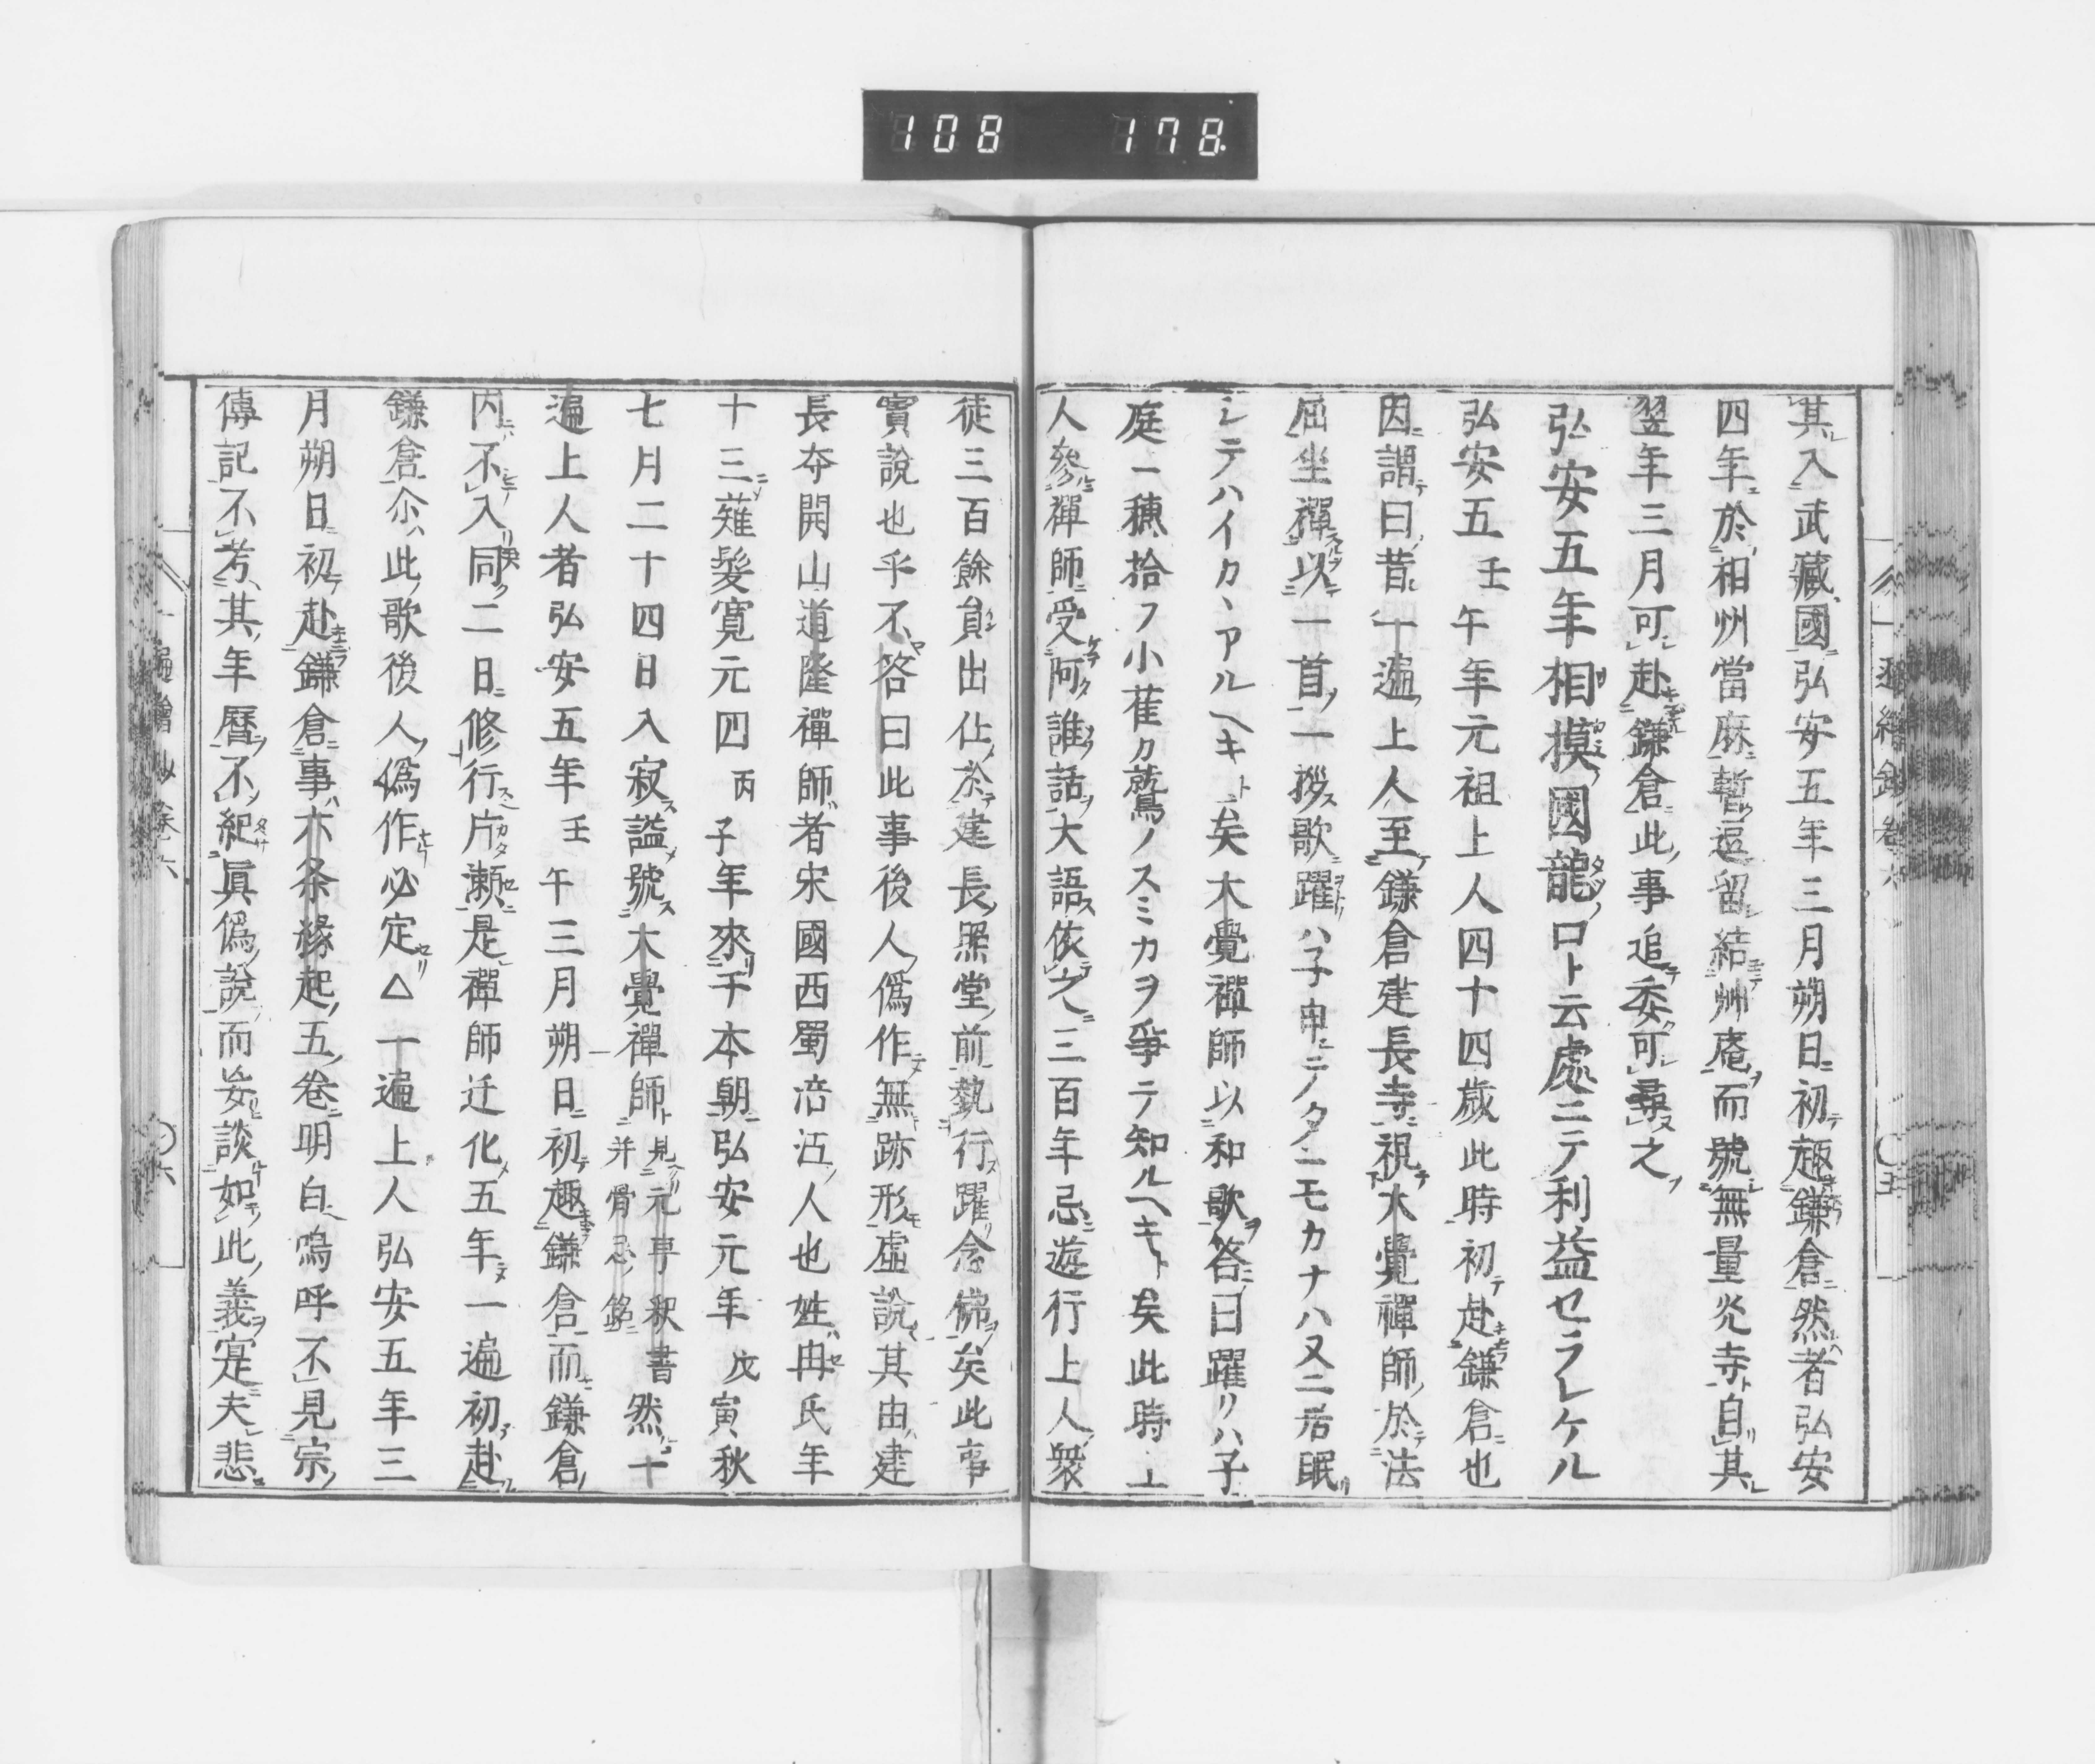 108 178
其入武藏國弘安五年三月朔日初趣鎌倉然者弘安
四年於相州當麻暫逗留結艸庵而號無量光寺自其
翌年三月可赴鎌倉此事追委可尋之
弘安五年相摸國龍口ト云處ニテ利益セラレケル
弘安五壬午年元祖上人四十四歲此時初赴鎌倉也
因謂曰昔一遍上人至鎌倉建長寺視大覺禪師於法
屈坐禪以一首一拶歌躍ハ子申ニテノタニモカナハ又ニ居眠
シテハイカヽアルヘキト矣大覺禪師以和歌答曰躍リハ子
庭一穗拾フ小雀カ鷲ノスミカヲ爭テ知ルヘキト矣此時上
人參禪師受阿誰話大語依之三百年忌遊行上人衆
徒三百餘員出仕於建長照堂前執行躍念佛矣此事
實說也乎不答曰此事後人僞作無跡形虛說其由建
長夲開山道隆禪師者宋國西蜀涪江人也姓冉氏年
十三薙髮寬元四丙子年來于本朝弘安元年戊寅秋
七月二十四日入寂謚號大覺禪師見元亨釈書并骨忌銘然十
遍上人者弘安五年壬午三月朔日初趣鎌倉而鎌倉
內不入同二日修行片瀬是禪師迁化五年一遍初赴
鎌倉尒此歌後人僞作必定△一遍上人弘安五年三
月朔日初赴鎌倉事六条緣起五卷明白嗚呼不見宗
傳記不考其年曆不紀眞僞說而妄談如此義寔夫悲